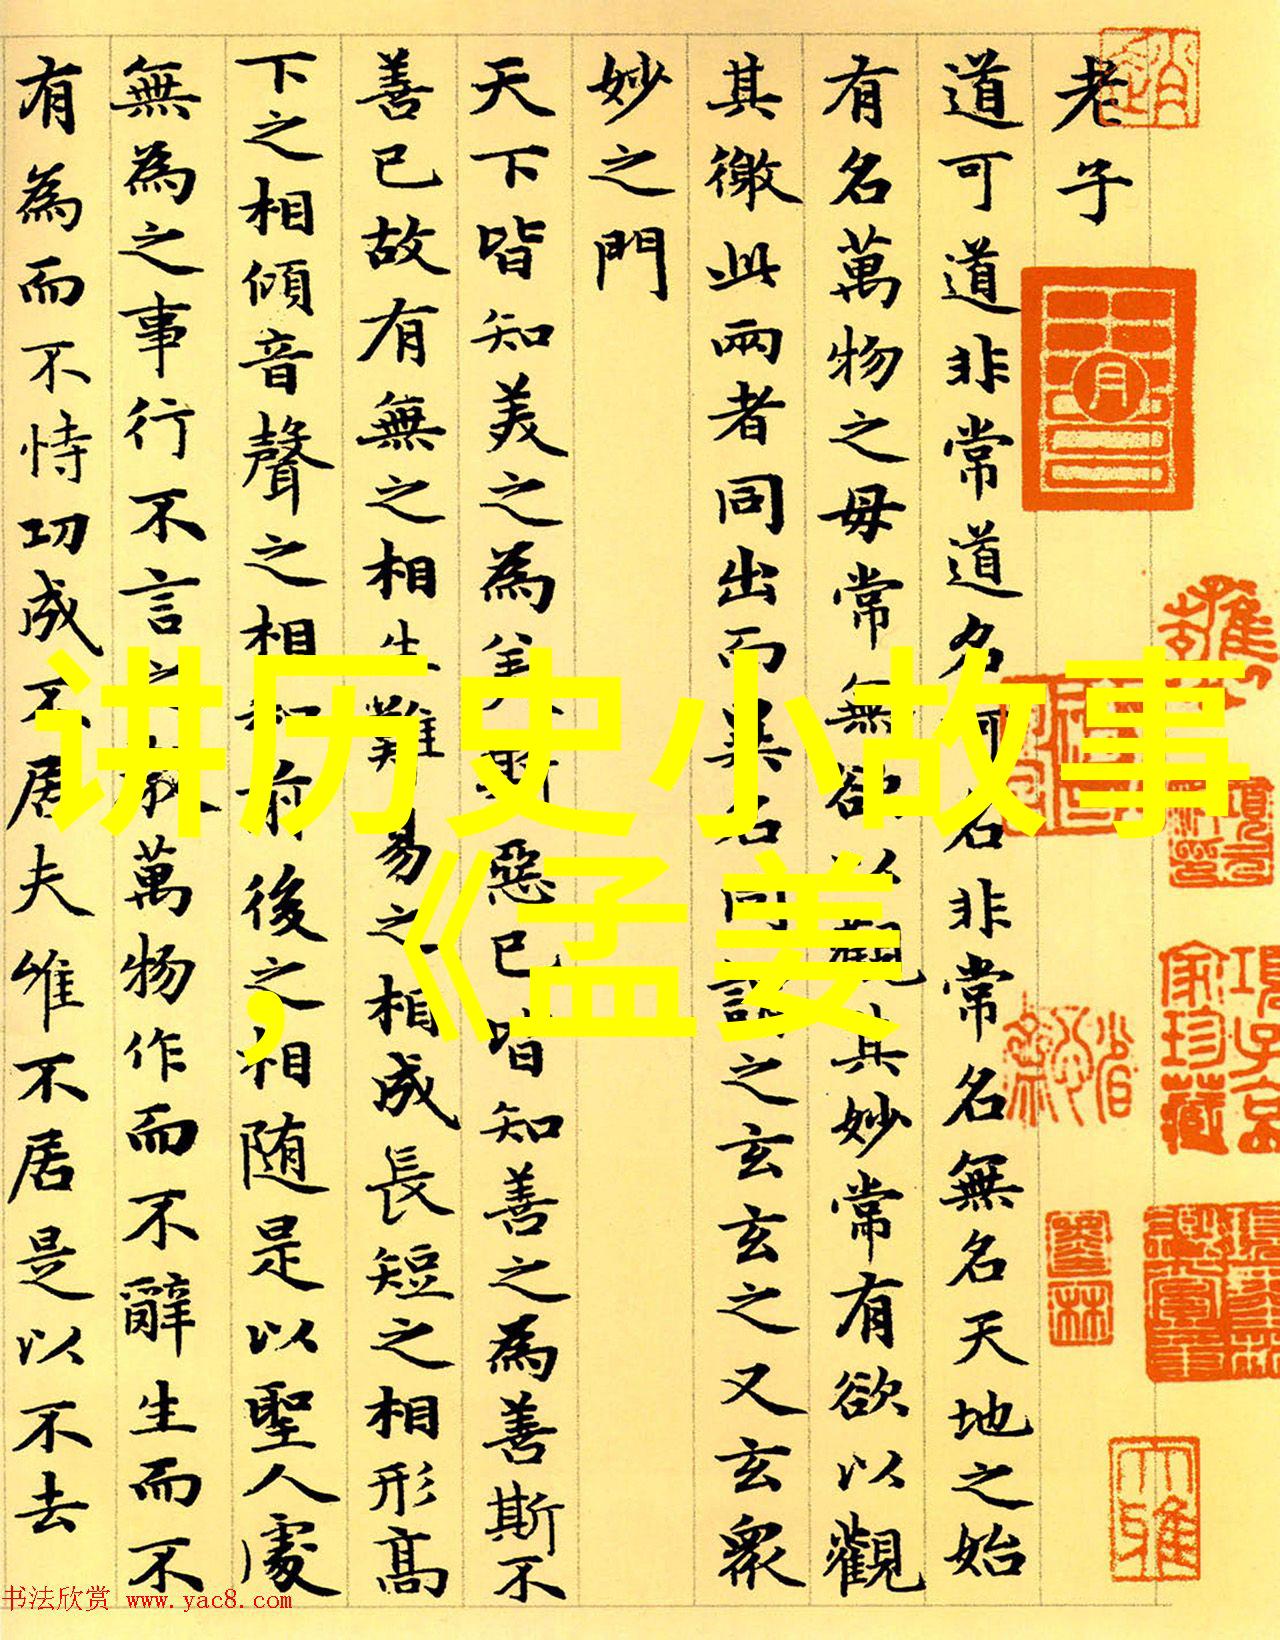 老子
道可道非常道名可名非常名無名天地之始
有名萬物之母常無欲以觀其妙常有欲以觀
其徼此兩者同出而異名同謂之玄玄之又玄眾
妙之門
天下皆知美之為美斯惡已皆知善之為善斯不
善已故有無之相生難易之相成長短之相形高
下之相傾音聲之相和前後之相随是以聖人處
無為之事行不言之教萬物作而不辭生而不
有為而不恃功成不居夫唯不居是以不去
讲历史小故事
，《孟姜
項子京
家珍藏
大雅
书法欣赏 www.yac8.com